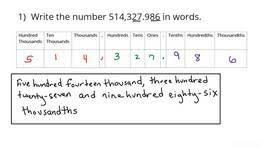 1) Write the number 514,327.986 in words.
Hundred Thousands Ten Thousands Thousands , Hundreds Tens Ones . Tenths Hundredths Thousandths
5 1 4 , 3 2 7 . 9 8 6
Five hundred fourteen thousand, three hundred
twenty-seven and nine hundred eighty-six
thousandths